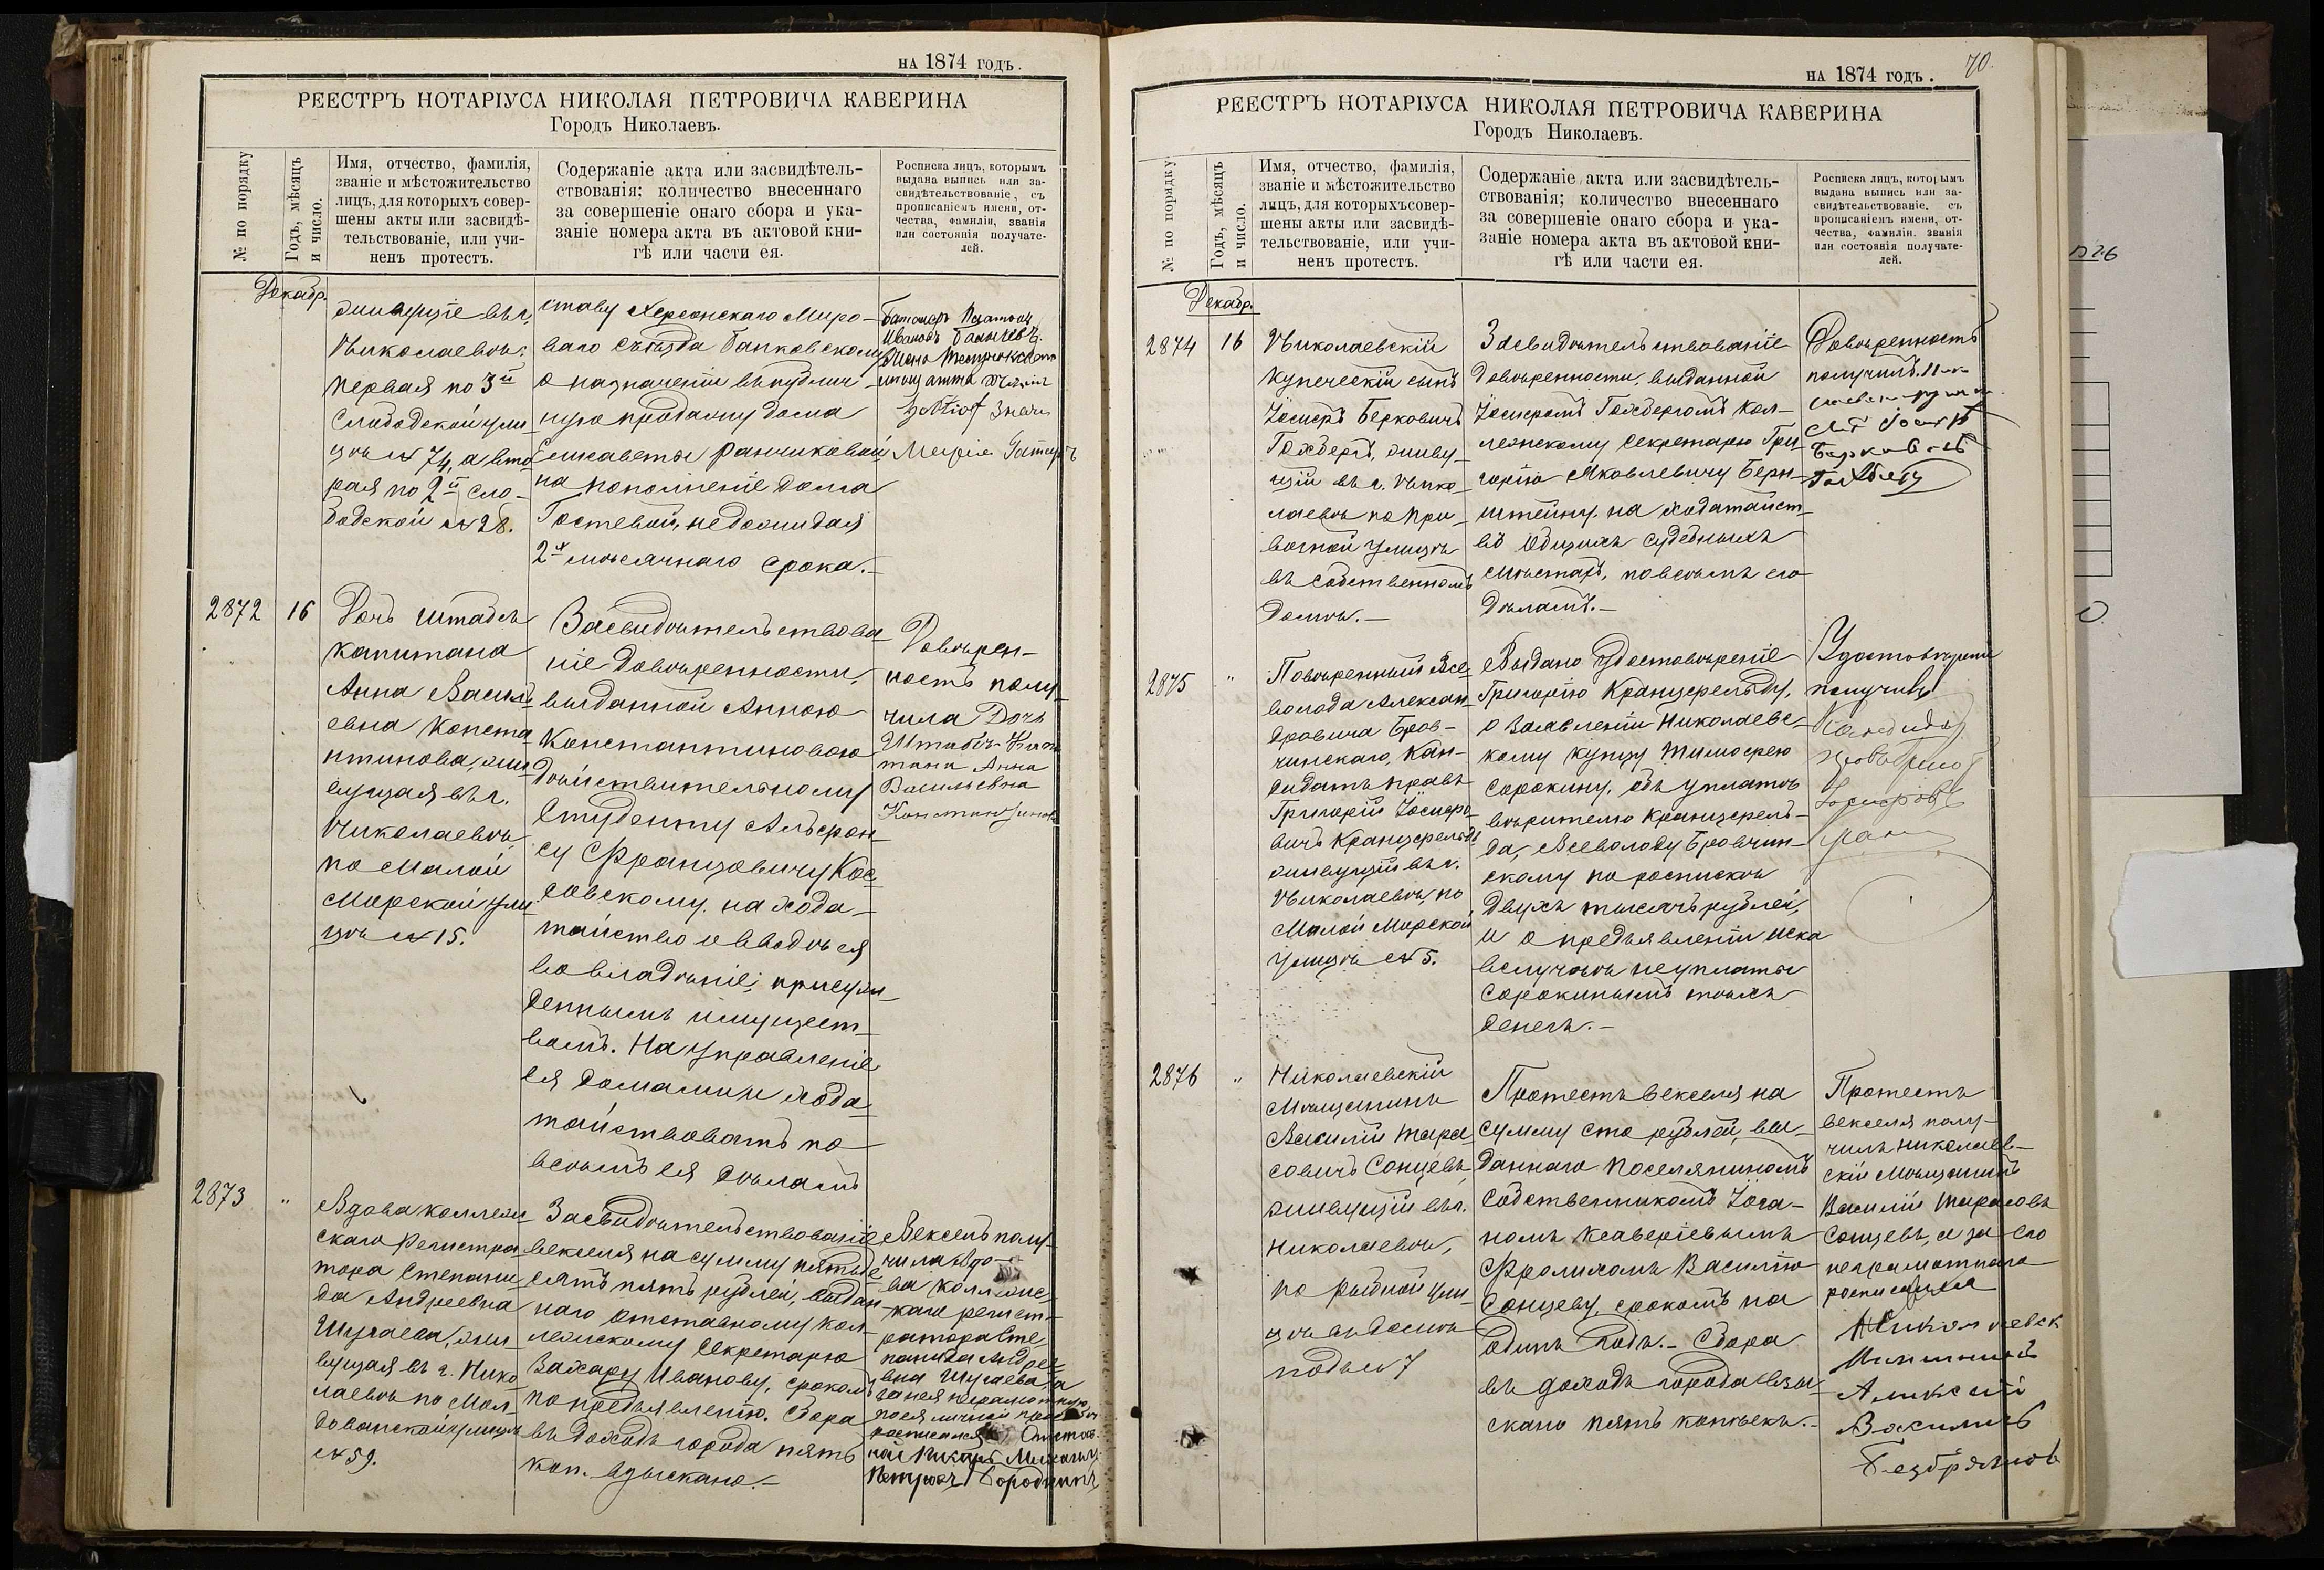 НА 1874 ГОДЪ.
РЕЕСТРЪ НОТАРІУСА НИКОЛАЯ ПЕТРОВИЧА КАВЕРИНА
Городъ Николаевъ.
№ по порядку
Годъ, мѣсяцъ
и число.
Имя, отчество, фамилія,
званіе и мѣстожительство
лицъ, для которыхъ совер-
шены акты или засвидѣ-
тельствованіе, или учи-
ненъ протестъ.
Содержаніе акта или засвидѣтель-
ствованія; количество внесеннаго
за совершеніе онаго сбора и ука-
заніе номера акта въ актовой кни-
гѣ или части ея.
Росписка лицъ, которымъ
выдана выпись или за-
свидѣтельствованіе, съ
прописаніемъ имени, от-
чества, фамиліи, званія
или состоянія получате-
лей.
Декабр.
живущіе въ г.
Николаевѣ:
первая по 3й
Слободской ули
цѣ № 74, а вто
рая по 2й сло-
бодской № 28.
ставу Херсонскаго Миро-
ваго съѣзда Банковскому
о назначеніи въ публич-
ную продажу дома
Елисаветы Ранчиковой
на пополненіе долга
Гостевой, не дожидая
2х мѣсячнаго срока.-
Ивановъ
Марія
2872
16
Дочь Штабсъ
капитана
Анна Василь
евна Конста
нтинова, жи
вущая въ г.
Николаевѣ,
по Малой
Морской ули
цѣ № 15.
Засвидѣтельствова
ніе довѣренности,
выданной Анною
Константиновою
Дѣйствительному
Студенту Альфон
су Францовичу Кос
совскому на хода-
тайство о вводѣ ея
во владѣніе, присуж-
деннымъ имущест-
вомъ. На управленіе
ея домами и хода
тайствовать по
всѣмъ ея дѣламъ
Довѣрен-
ность полу-
чила Дочь
Штабсъ Капи
тана Анна
Васильевна
Константинова
2873
"
Вдова коллеж
скаго Регистра
тора Степани
да Андреевна
Шугаева, жи
вущая въ г. Нико
лаевѣ по Мол
дованской улицѣ
№ 59.
Засвидѣтельствованіе
векселя на сумму пятьде
сятъ пять рублей, выдан
наго отставному кол-
лежскому Секретарю
Захару Иванову, срокомъ
по предъявленію. Сбора
въ доходъ города пять
коп. взыскано.-
Вексель полу-
чила вдо-
ва коллежс
каго регист-
ратора Сте
панида Андре
вна Шугаева, а
за нея неграмотную
по ея личной просьбѣ
росписался Отстав
ной Писарь Михаилъ
Петровъ Бородкинъ
НА 1874 ГОДЪ.
70.
РЕЕСТРЪ НОТАРІУСА НИКОЛАЯ ПЕТРОВИЧА КАВЕРИНА
Городъ Николаевъ.
№ по порядку
Годъ, мѣсяцъ
и число.
Имя, отчество, фамилія,
званіе и мѣстожительство
лицъ, для которыхъ совер-
шены акты или засвидѣ-
тельствованіе, или учи-
ненъ протестъ.
Содержаніе акта или засвидѣтель-
ствованія; количество внесеннаго
за совершеніе онаго сбора и ука-
заніе номера акта въ актовой кни-
гѣ или части ея.
Росписка лицъ, которымъ
выдана выпись или за-
свидѣтельствованіе, съ
прописаніемъ имени, от-
чества, фамиліи, званія
или состоянія получате-
лей.
Декабр.
2874
16
Николаевскій
купеческій сынъ
Іосифъ Берковичъ
Гохбергъ, живу-
щій въ г. Нико-
лаевѣ по При-
возной улицѣ
въ собственномъ
домѣ.-
Засвидѣтельствованіе
довѣренности, выданной
Іосифомъ Гохбергомъ кол-
лежскому Секретарю Гри
горію Яковлевичу Берн-
штейну на ходатайст-
во въ общихъ судебныхъ
мѣстахъ, по всѣмъ его
дѣламъ.-
Довѣренность
получилъ
Гохбергъ
2875
"
Повѣренный Все
волода Алексан
дровича Бров-
чинскаго, Кан-
дидатъ правъ
Григорій Іосифо
вичъ Кранцфельдъ
живущій въ г.
Николаевѣ, по
Малой Морской
улицѣ № 5.
Выдано удостовѣреніе
Григорію Кранцфельду,
о заявленіи Николаевс-
кому купцу Тимофею
Сорокину, объ уплатѣ
вѣрителю Кранцфель-
да, Всеволоду Бровчин-
скому по роспискѣ
двухъ тысячъ рублей,
и о предъявленіи иска
въ случаѣ неуплаты
Сорокинымъ тѣхъ
денегъ.-
Удостовѣреніе
получилъ
Кандидат
2876
"
Николаевскій
Мѣщанинъ
Василій Тара
совичъ Сонцевъ
живущій въ г.
Николаевѣ,
по рыбной ули
цѣ въ домѣ
подъ № 7
Протестъ векселя на
сумму сто рублей, вы-
даннаго поселяниномъ
собственникомъ Іога-
номъ Ксаверіевымъ
Фролихомъ Василію
Сонцеву, срокомъ на
одинъ годъ.- Сбора
въ доходъ города взы
скано пять копѣекъ.-
Протестъ
векселя полу-
чилъ Николаев-
скій Мѣщанинъ
Василій Тарасовъ
Сонцевъ, а за его
неграмотнаго
росписался
Алексей